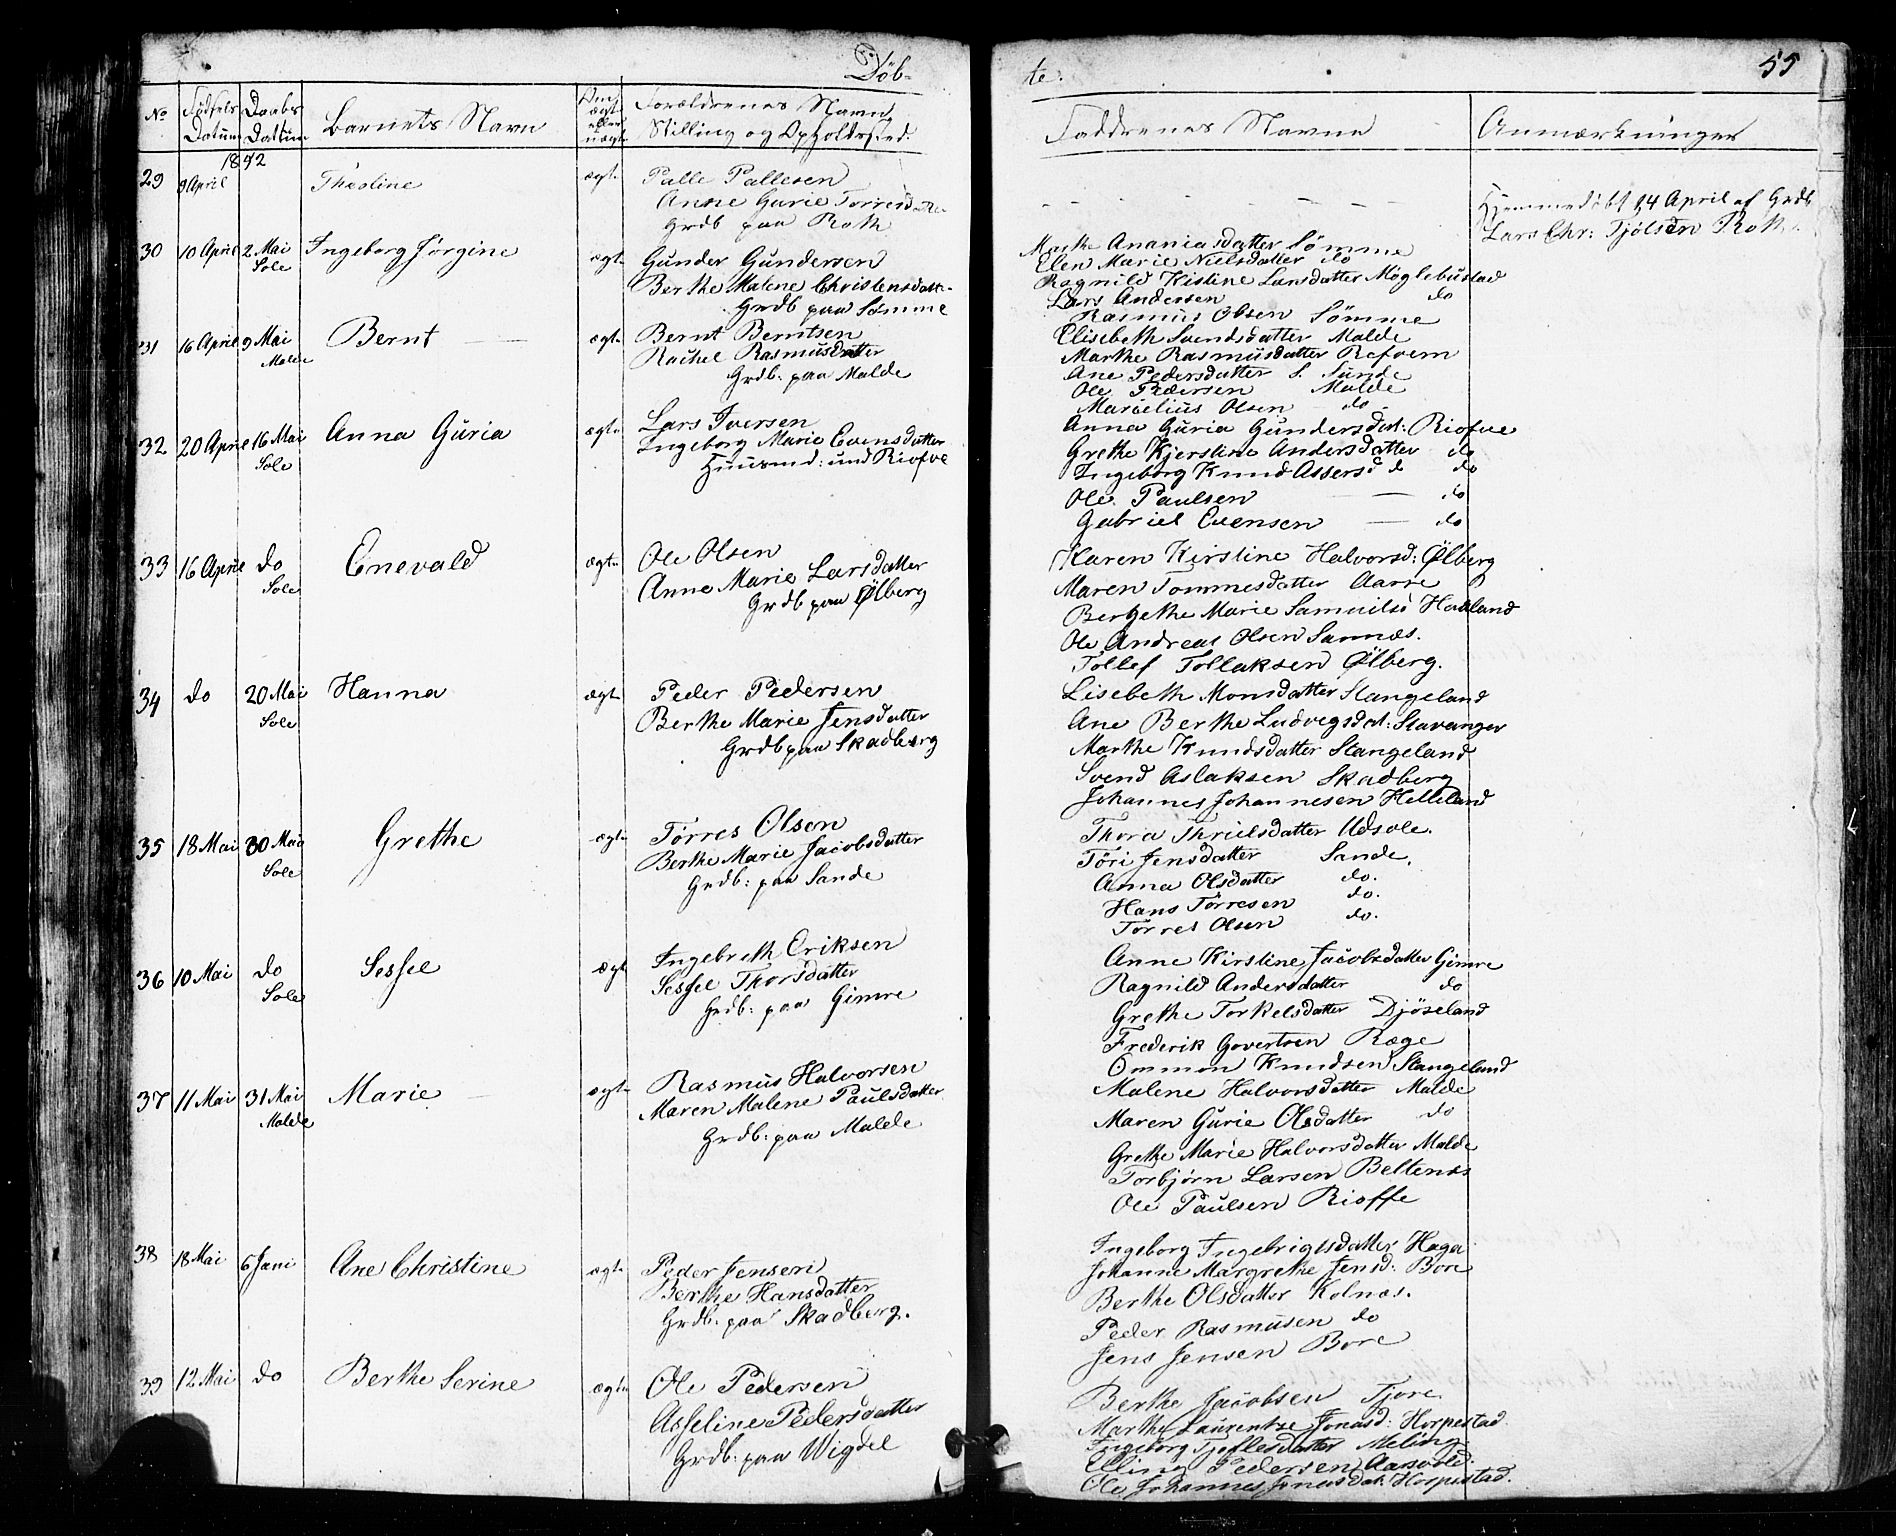 Döb-
te.
55
No
Födsels Datum
Daabs Dattum
Barnets Navn
Om ægte eller uægte
Forældrenes Navn, Stilling og Opholdssted
Faddrenes Navne
Anmærkninger
1842
29 9 April Theoline ægte Palle Pallesen
Anne Gurie Torresdatter
Grdb paa Roth
Hjemmedöbt 14 April af Grdb
Lars Chr: Tjölsen Roth.
30 10 April 2 Mai Sole Ingeborg Jørgine ægte Gunder Gundersen
Berthe Malene Christensdatt.
Grdb paa Sømme
Marthe Ananiasdatter Sömme
Elen Marie Nielsdatter do
Ragnild Kistine Larsdatter Möglebustad
Lars Andersen do
Rasmus Olsen Sömme
31 16 April 9 Mai Malde Bernt ægte Bernt Berntsen
Rachel Rasmusdatter
Grdb. paa Malde
Elisebeth Svendsdatter Malde
Marthe Rasmusdatter Refvem
Ane Pedersdatter S. Sunde
Ole Pedersen Malde
Marcelius Olsen do
32 20 April 16 Mai Sole Anna Guria ægte Lars Iversen
Ingeborg Marie Evensdatter
Huusmd: und Riofve
Anna Guria Gundersdat: Riofve
Grethe Kjerstine Andersdatter do
Ingeborg Knud Assersd d do
Ole Paulsen do
Gabriel Evensen do
33 16 April do Sole Enevald ægte Ole Olsen
Anne Marie Larsdatter
Grdb paa Ølberg
Karen Kirstine Halvorsd: Ølberg
Maren Tommesdatter Aarre
Bergethe Marie Samuelsd Haaland
Ole Andreas Olsen Sannes.
Tollef Tollaksen Ølberg.
34 do 20 Mai Sole Hanna ægte Peder Pedersen
Berthe Marie Jensdatter
Grdb paa Skadberg
Lisebeth Monsdatter Stangeland
Ane Berthe Ludvegsdat: Stavanger
Marthe Knudsdatter Stangeland
Svend Aslaksen Skadberg
Johannes Johannesen Helleland
35 18 Mai 30 Mai Sole Grethe ægte Tørres Olsen
Berthe Marie Jacobsdatter
Grdb: paa Sande
Thora Thrielsdatter Udsole.
Töri Jensdatter Sande.
Anna Olsdatter do.
Hans Torresen do.
Torres Olsen do.
36 10 Mai do Sole Sessel ægt Ingebreth Eriksen
Sessel Thorsdatter
Grdb: paa Gimre
Anne Kirstine Jacobsdatter Gimre
Ragnild Andersdatter do
Grethe Torkelsdatter Djöseland
Frederik Govertsen Ræge
Ommon Knudsen Stangeland
37 11 Mai 31 Mai Malde Marie ægte Rasmus Halvorsen
Maren Malene Paulsdatter
Grdb: paa Malde
Malene Halvorsdatter Malde
Maren Gurie Olsdatter do
Grethe Marie Halvorsdatter Malde
Torbjörn Larsen Beltenes
Ole Paulsen Rioffe
38 18 Mai 6 Juni Ane Christine ægte Peder Jensen
Berthe Hansdatter
Grdb. paa Skadberg.
Ingeborg Ingebrigtsdatter Haga
Johanne Margrethe Jensd: Bore
Berthe Olsdatter Kolnes.
Peder Rasmusen do
Jens Jensen Bore
39 12 Mai do Berthe Serine ægte Ole Pedersen
Asseline Pedersdatter
Grdb. paa Wigdel
Berthe Jacobsen Tjore.
Marthe Laurentze Jonasd: Horpestad
Ingeborg Tjeflesdatter Meling
Elling Pedersen Aasvold.
Ole Johannes Jonasdat: Horpestad.